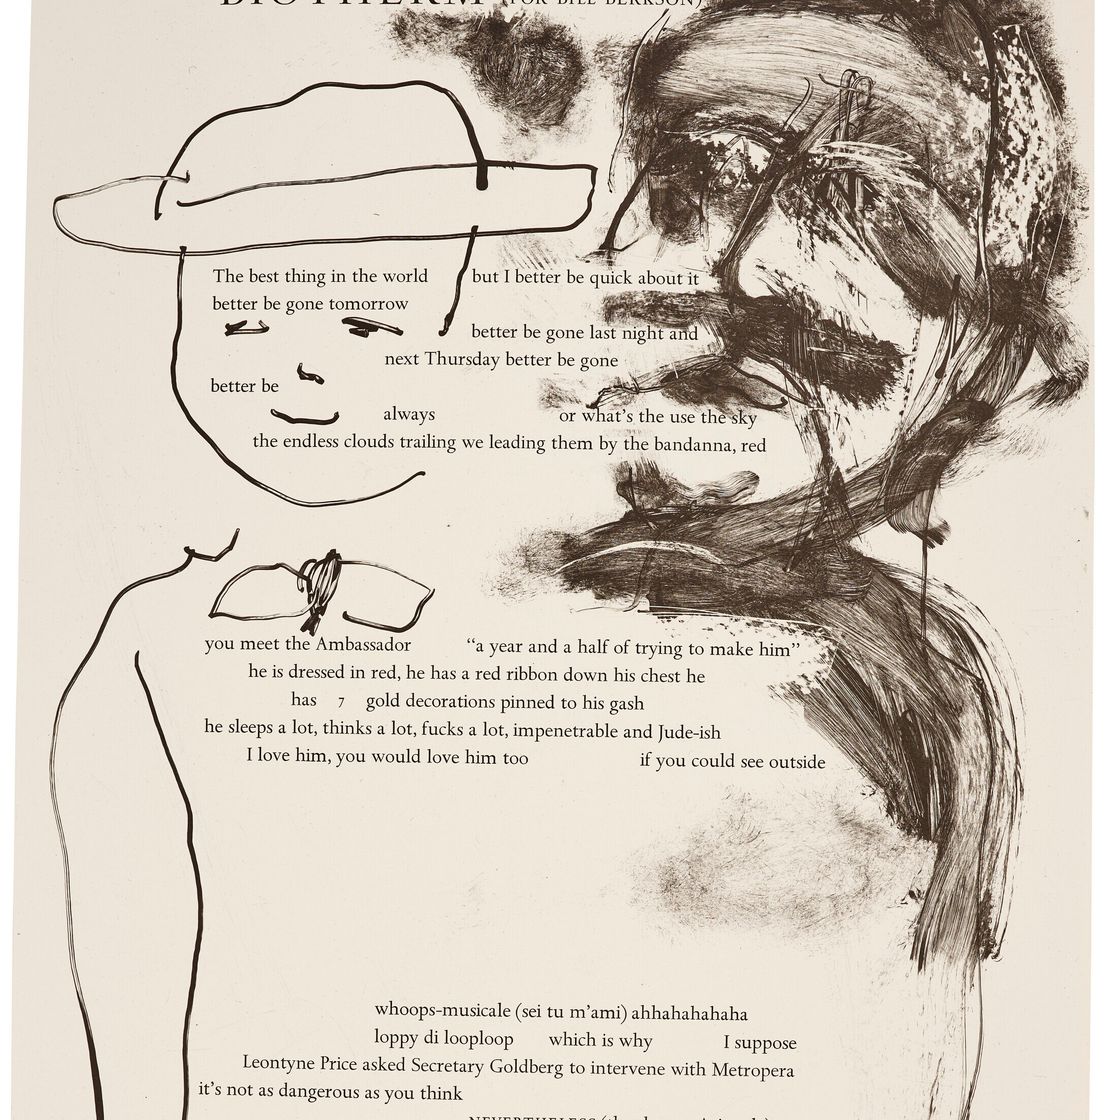 BIOTHERM (FOR BILL BERKSON)
The best thing in the world but I better be quick about it
better be gone tomorrow
better be gone last night and
next Thursday better be gone
better be
always or what's the use the sky
the endless clouds trailing we leading them by the bandanna, red
you meet the Ambassador “a year and a half of trying to make him”
he is dressed in red, he has a red ribbon down his chest he
has 7 gold decorations pinned to his gash
he sleeps a lot, thinks a lot, fucks a lot, impenetrable and Jude-ish
I love him, you would love him too if you could see outside
whoops-musicale (sei tu m'ami) ahhahahahaha
loppy di looploop which is why I suppose
Leontyne Price asked Secretary Goldberg to intervene with Metropera
it's not as dangerous as you think
NEVERTHELESS